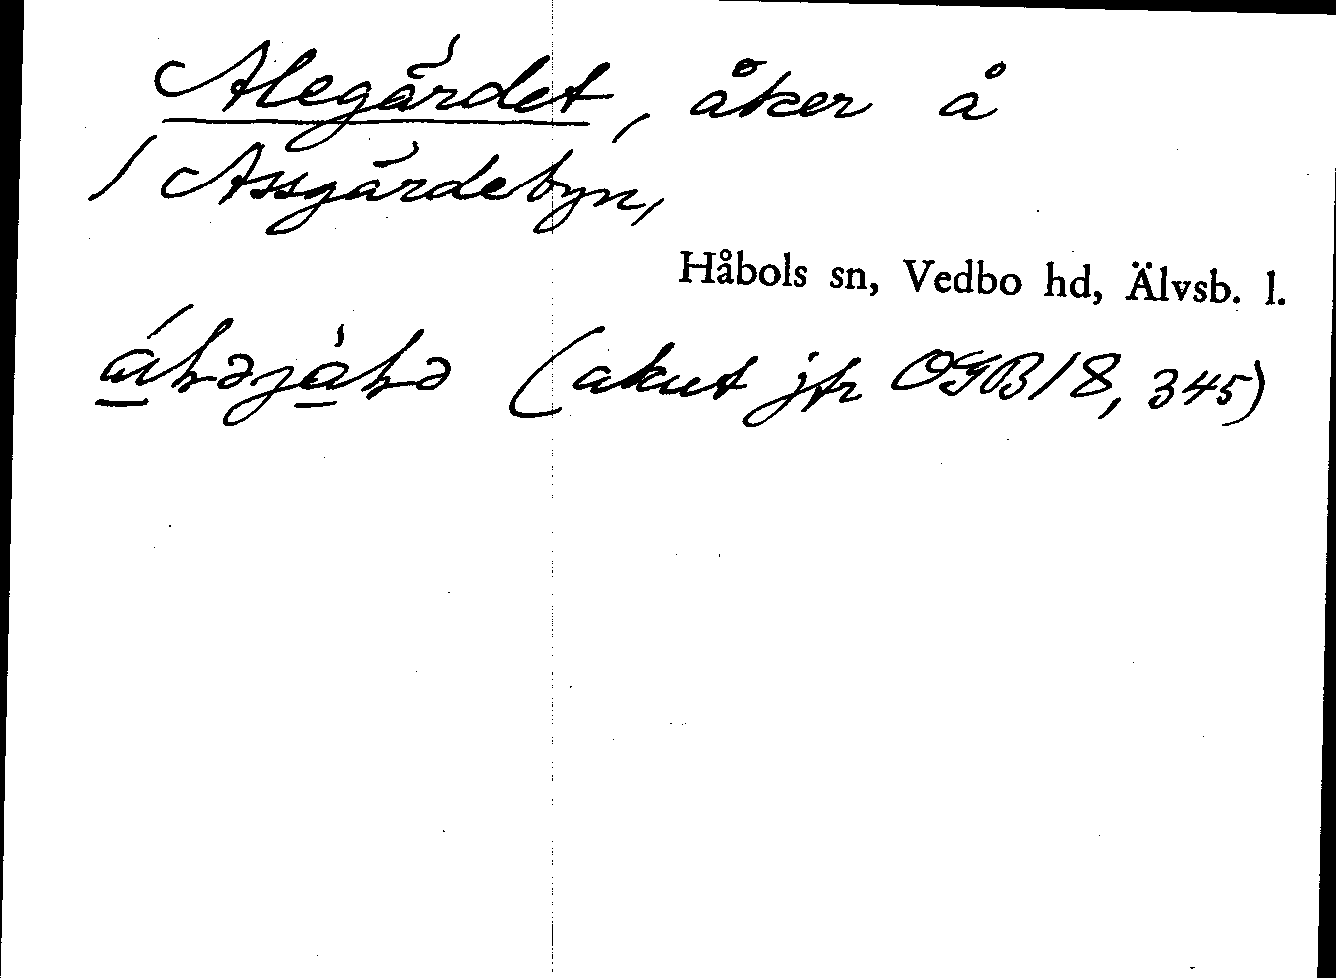 Alegärdet, åker å
/ Assgärdebyn,
Håbols sn, Vedbo hd, Älvsb. l.
(akut jfr OGB 18, 345)